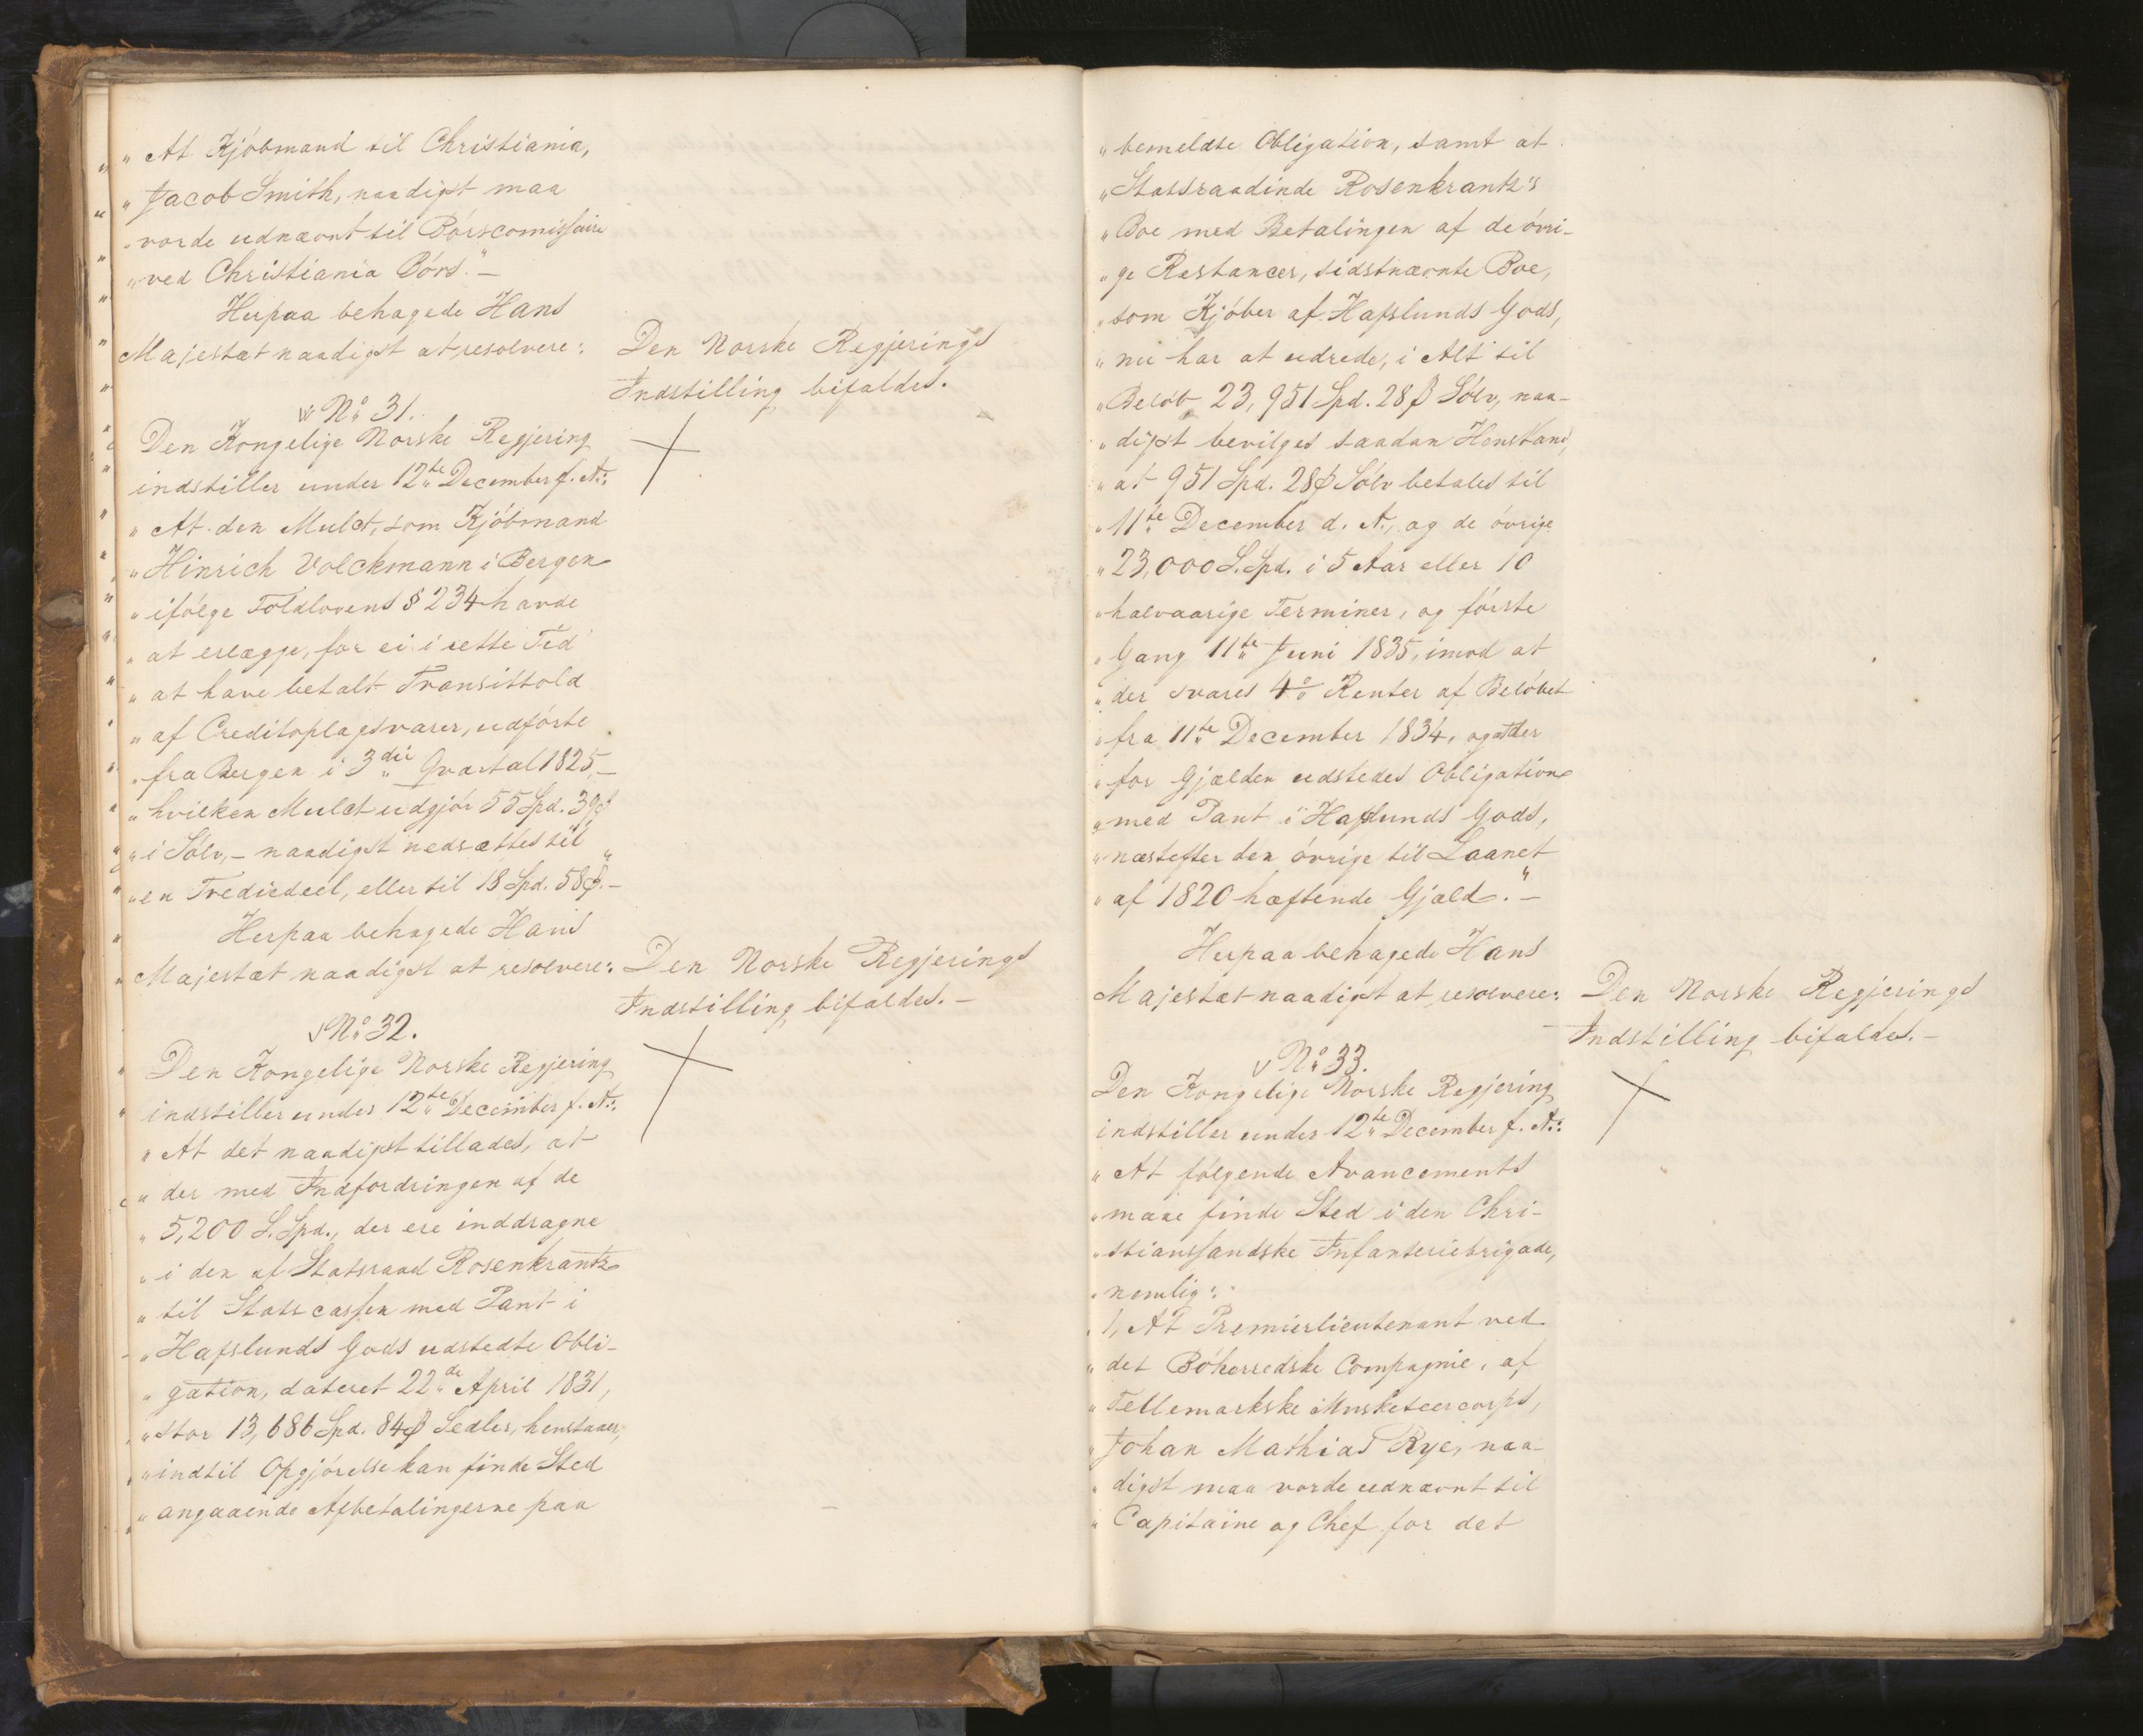 „At Kjöbmand til Christiania,
„Jacob Smith, naadigst maa
„vorde udnævnt til Börscomissaire
„ved Christiania Börs.“ –
Herpaa behagede Hans
Majestæt naadigst at resolvere:
Den Norske Regjerings
Indstilling bifaldes.
No 31.
Den Kongelige Norske Regjering
indstiller under 12te December f. A.:
„At den Mulct, som Kjöbmand
„Hinrich Volckmann i Bergen
„ifölge Toldlovens § 234 havde
„at erlægge, for ei i rette Tid
„at have betalt Transittold
„af Creditoplagsvarer, udförte
„fra Bergen i 3die Qvartal 1825, –
„hvilken Mulct udgjör 55 Spd. 39 ß
„i Sölv, – naadigst nedsættes til
„en Trediedeel, eller til 18 Spd. 58 ß.“ –
Herpaa behagede Hans
Majestæt naadigst at resolvere:
Den Norske Regjerings
Indstilling bifaldes. –
No 32.
Den Kongelige Norske Regjering
indstiller under 12te December f. A.:
„At det naadigst tillades, at
„der med Indfordringen af de
„5,200 S. Spd., der ere inddragne
„i den af Statsraad Rosenkrantz
„til Statscassen med Pant i
„Hafslunds Gods udstedte Obli-
„gation, dateret 22de April 1831,
„stor 13,686 Spd. 84 ß Sedler, henstaaer,
„indtil Opgjörelse kan finde Sted
„angaaende Afbetalingerne paa
„bemeldte Obligation, samt at
„Statsraadinde Rosenkrantz's
„Boe med Betalingen af de övri-
„ge Restancer, sidstnævnte Boe,
„som Kjöber af Hafslunds Gods,
„nu har at udrede, i Alt til
„Belöb 23,951 Spd. 28 ß Sölv, naa-
„digst bevilges saadan Henstand,
„at 951 Spd. 28 ß Sölv betales til
„11te December d. A., og de övrige
„23,000 S. Spd. i 5 Aar eller 10
„halvaarige Terminer, og förste
„Gang 11te Juni 1835, imod at
„der svares 4 % Renter af Belöbet
„fra 11te December 1834, og at der
„for Gjælden udstedes Obligation
„med Pant i Hafslunds Gods,
„næstefter den övrige til Laanet
„af 1820 hæftende Gjæld.“ –
Herpaa behagede Hans
Majestæt naadigst at resolvere:
Den Norske Regjerings
Indstilling bifaldes. –
No 33.
Den Kongelige Norske Regjering
indstiller under 12te December f. A.:
„At fölgende Avancements
„maae finde Sted i den Chri-
„stianssandske Infanteriebrigade,
„nemlig:
„1, At Premierlieutenant ved
„det Böherredske Compagnie, af
„Tellemarkske Musketeercorps,
„Johan Mathias Rye, naa-
„digst maa vorde udnævnt til
„Capitaine og Chef for det